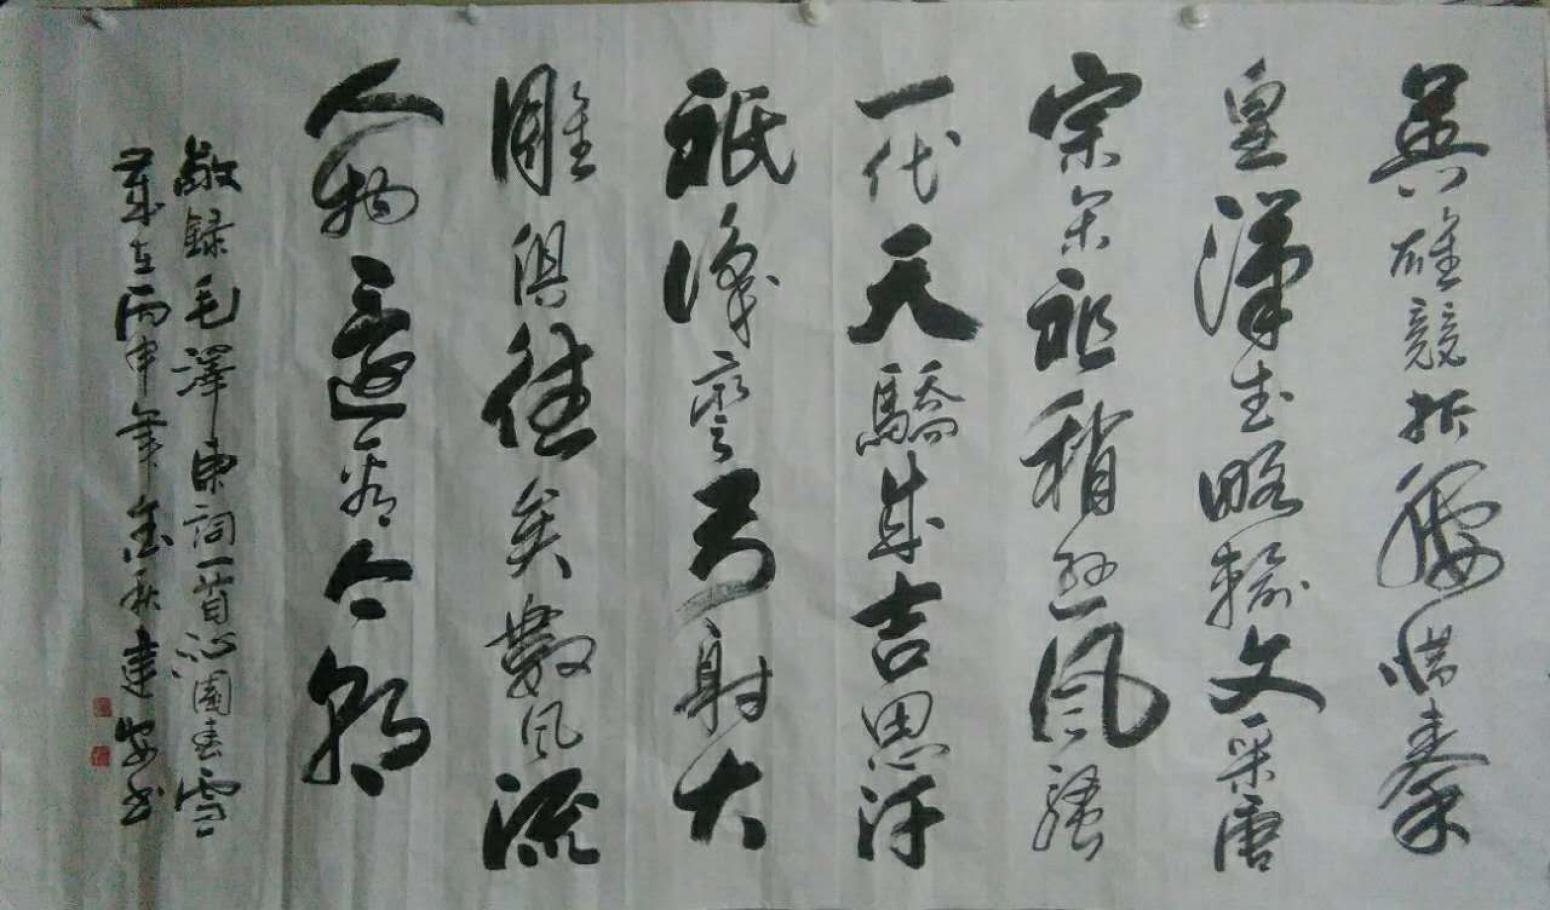 英雄競折腰惜秦
皇漢武略輸文采唐
宗宋祖稍遜風騷
一代天驕成吉思汗
祗識彎弓射大
雕俱往矣數風流
人物還看今朝
敬録毛澤東詞一首沁園春雪
歲在丙申年金秋建安书